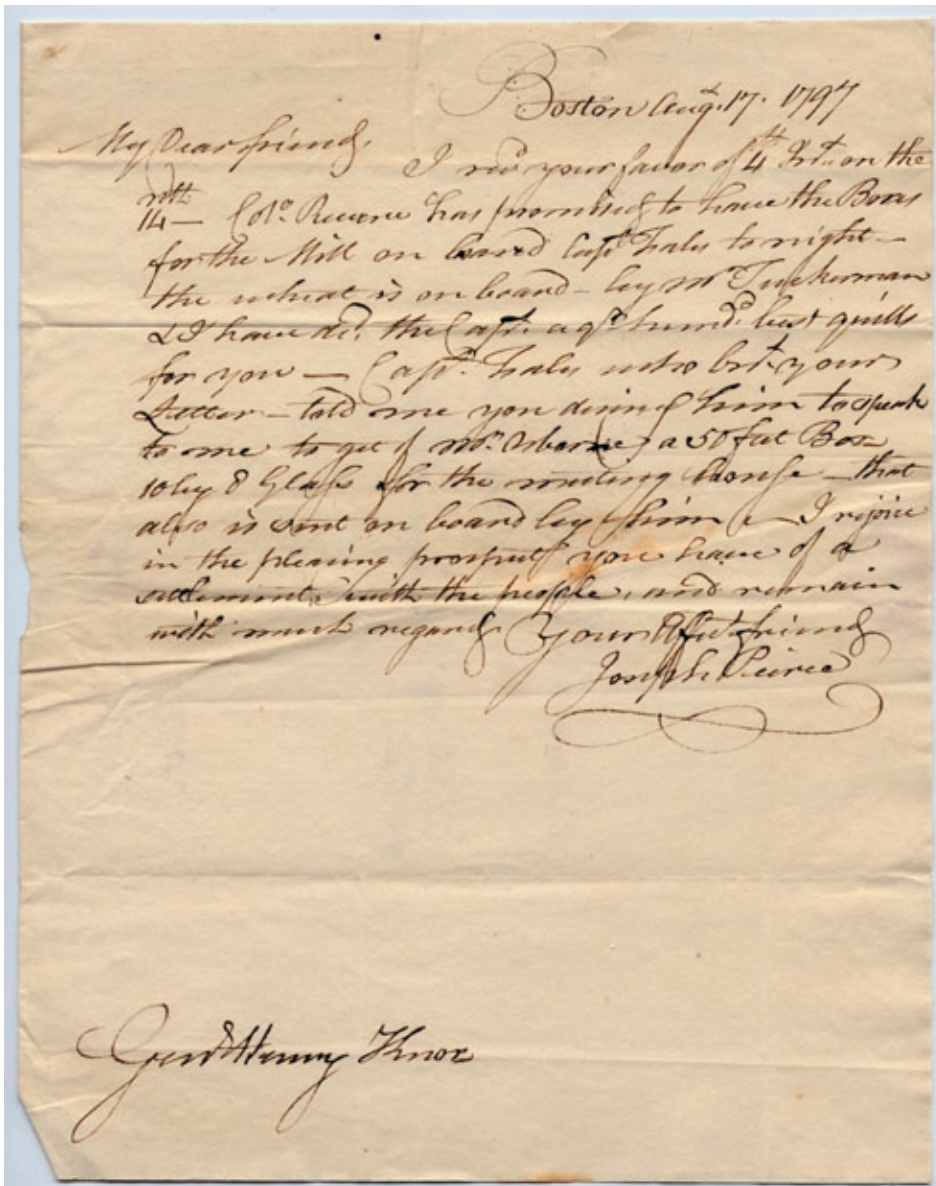 Boston Aug. 17. 1797
My Dear friend,
I recd your favor of 4th Inst. on the
14 — Colo. Revere has promised to have the Boxes
for the Mill on board Capt. Fales to night —
the wheat is on board — by Mr. Tuckerman
& I have dd. the Capt. a qr. hundd. best quills
for you — Capt. Fales who brt. your
Letter — told me you desired him to speak
to me to get of Mr. Osborne a 50 feet Box
10 by 8 Glass for the meeting house — that
also is sent on board by him — I rejoice
in the pleasing prospect you have of a
settlement with the people, and remain
with much regard Your Afft. friend
Joseph Peirce
Genl. Henry Knox